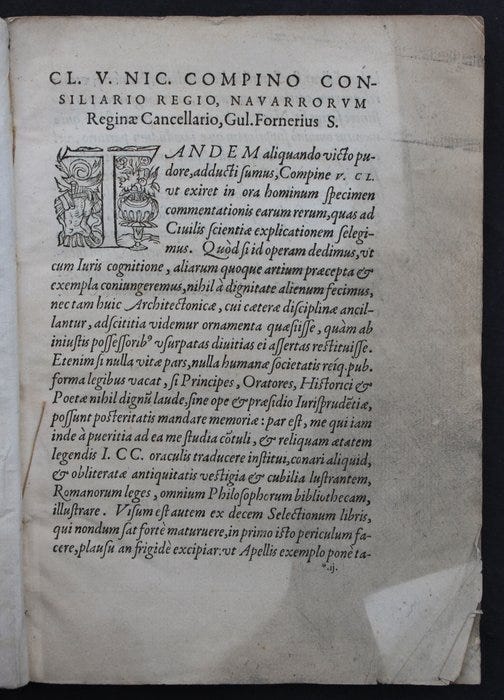 CL. V. NIC. COMPINO CON-
SILIARIO REGIO, NAVARRORVM
Reginæ Cancellario, Gul. Fornerius S.
TANDEM aliquando victo pu-
dore, adducti sumus, Compine V. CL.
vt exiret in ora hominum specimen
commentationis earum rerum, quas ad
Ciuilis scientiæ explicationem selegi-
mus. Quòd si id operam dedimus, vt
cum Iuris cognitione, aliarum quoque artium præcepta &
exempla coniungeremus, nihil à dignitate alienum fecimus,
nec tam huic Architectonicæ, cui cæteræ disciplinæ ancil-
lantur, adscititia videmur ornamenta quæsiisse, quàm ab
iniustis possessorib⁹ vsurpatas diuitias ei assertas restituisse.
Etenim si nulla vitæ pars, nulla humanæ societatis reiq́. pub.
forma legibus vacat, si Principes, Oratores, Historici &
Poetæ nihil dignū laude, sine ope & præsidio Iurisprudētiæ,
possunt posteritatis mandare memoriæ: par est, me qui iam
inde à pueritia ad ea me studia cōtuli, & reliquam ætatem
legendis I. CC. oraculis traducere institui, conari aliquid,
& obliteratæ antiquitatis vestigia & cubilia lustrantem,
Romanorum leges, omnium Philosophorum bibliothecam,
illustrare. Visum est autem ex decem Selectionum libris,
qui nondum sat fortè maturuere, in primo isto periculum fa-
cere, plausu an frigidè excipiar: vt Apellis exemplo ponè ta-
*.ij.